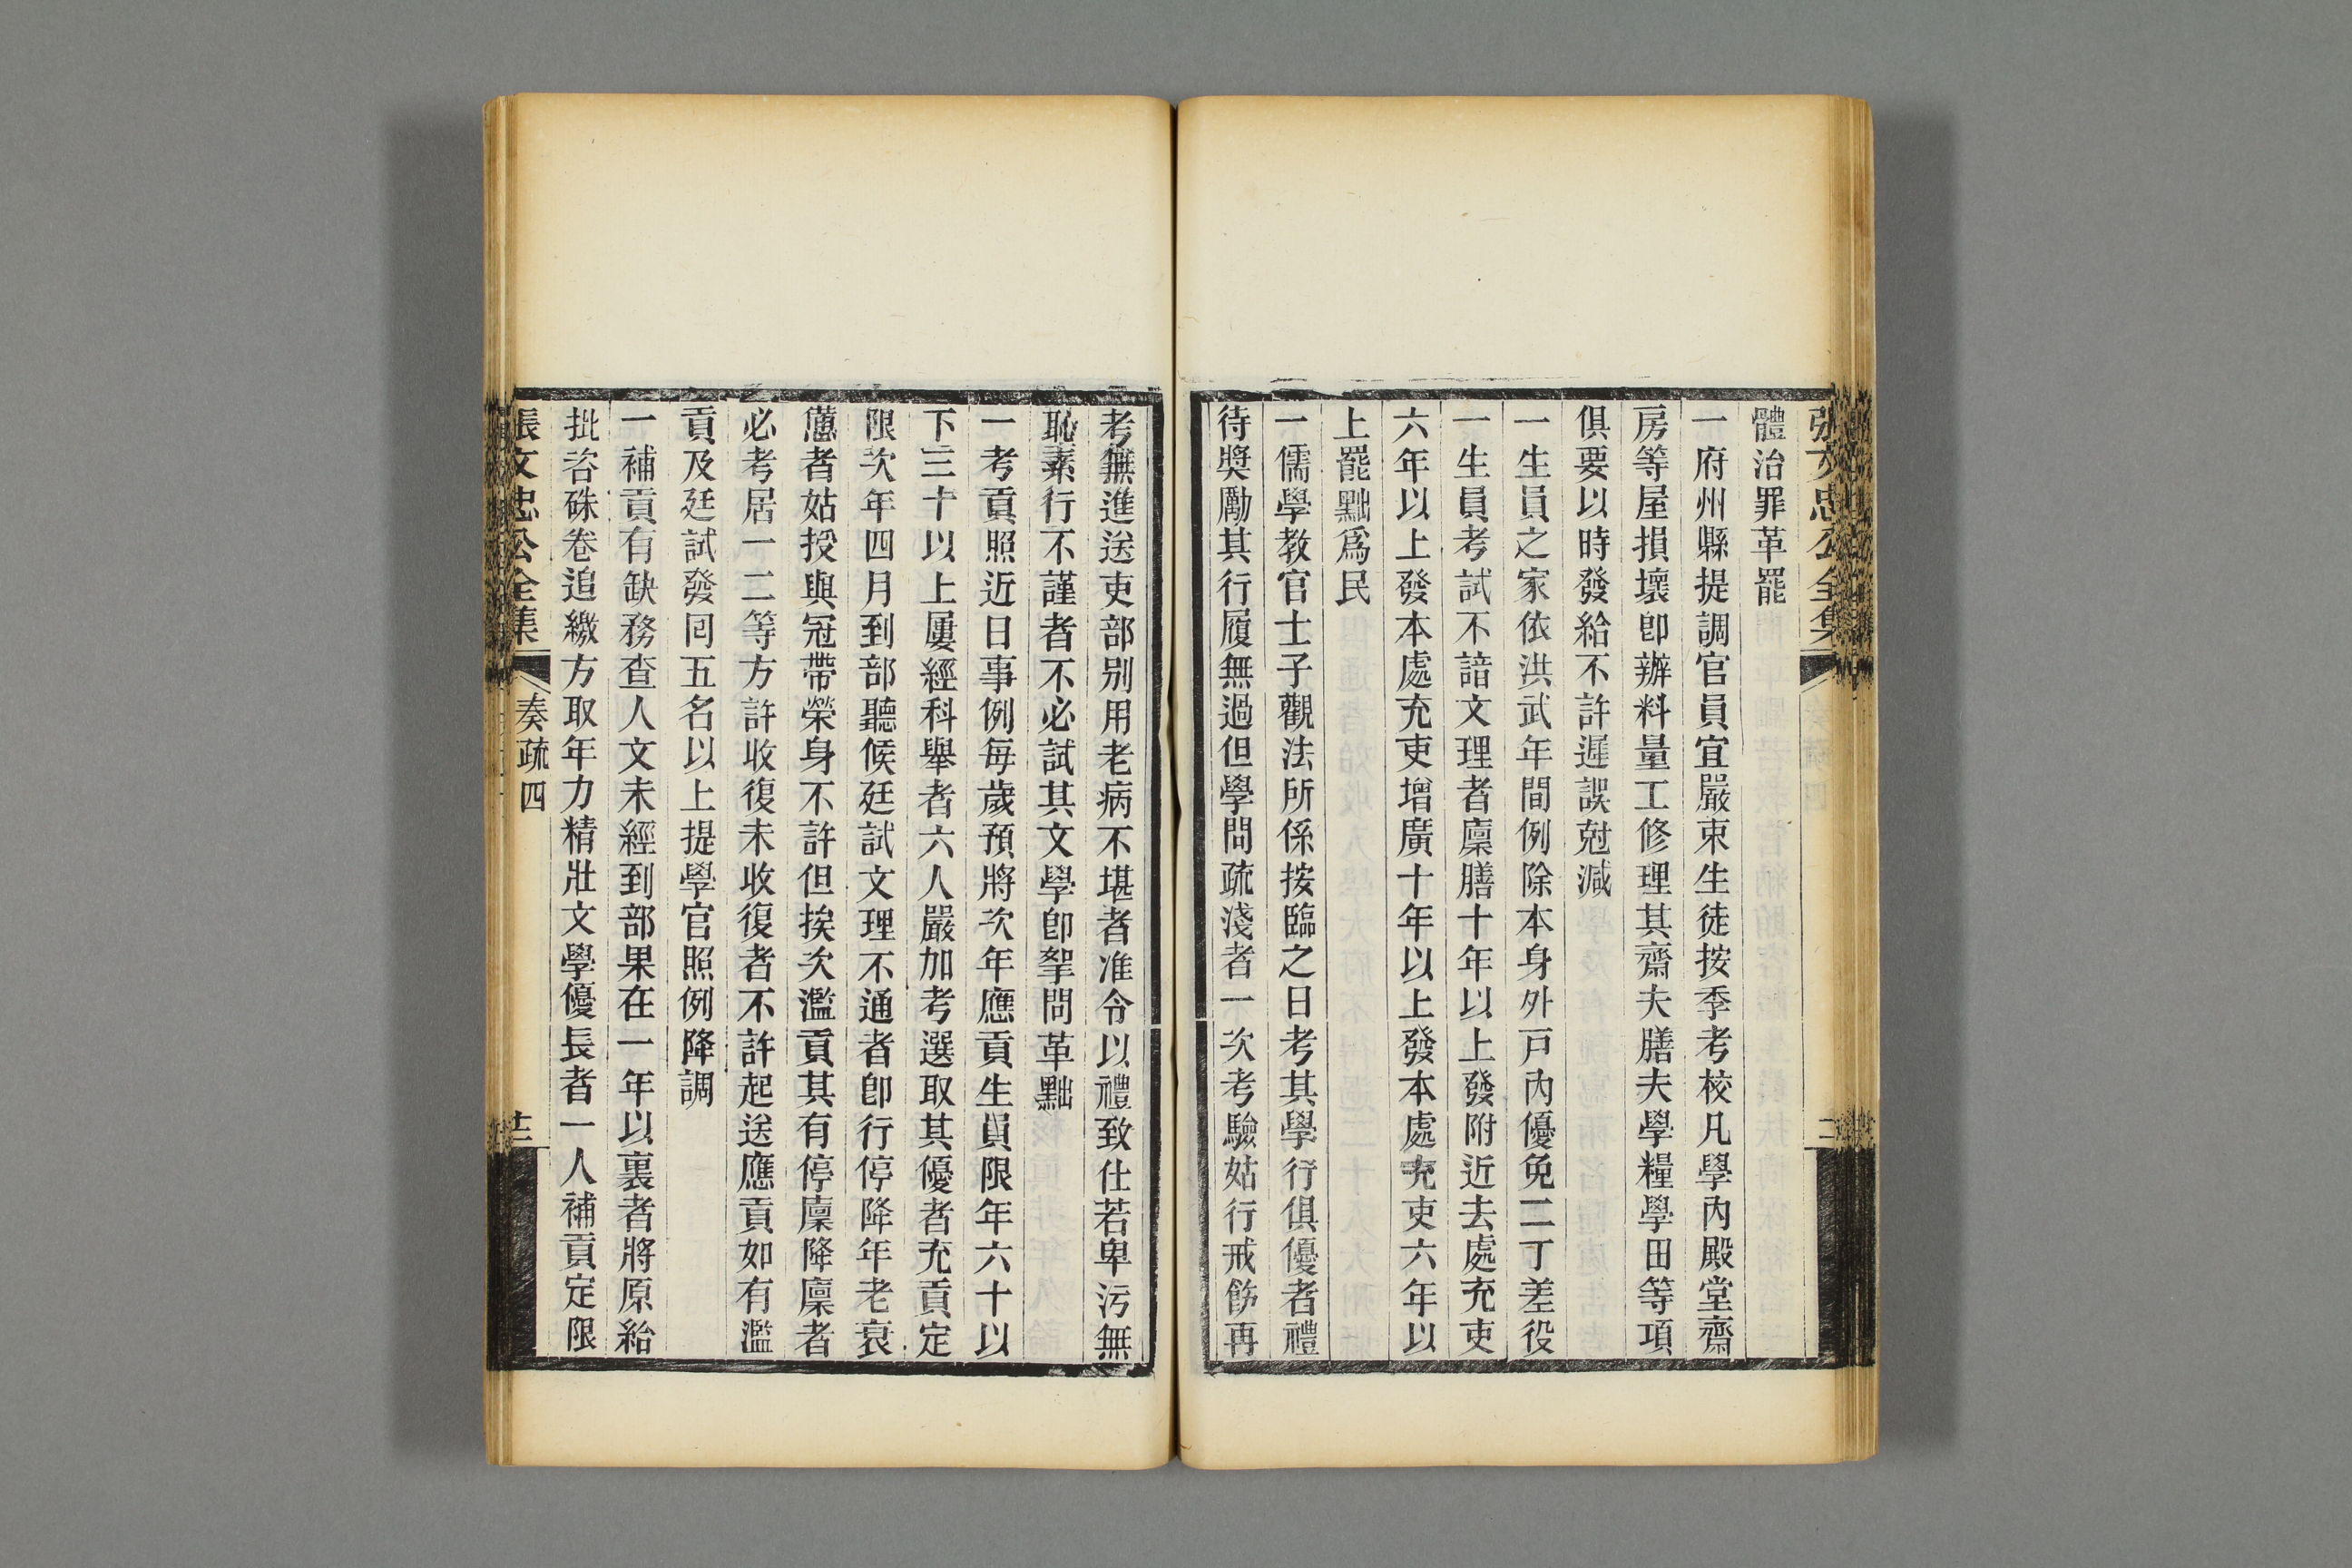 張文忠公全集
體治罪革罷
一府州縣提調官員宜嚴束生徒按季考校凡學內殿堂齋
房等屋損壞卽辦料量工修理其齋夫膳夫學糧學田等項
俱要以時發給不許遲誤尅減
一生員之家依洪武年間例除本身外戸內優免二丁差役
一生員考試不諳文理者廩膳十年以上發附近去處充吏
六年以上發本處充吏增廣十年以上發本處充吏六年以
上罷黜爲民
一儒學教官士子觀法所係按臨之日考其學行俱優者禮
待奬勵其行履無過但學問疏淺者一次考驗姑行戒飭再
考無進送吏部别用老病不堪者准令以禮致仕若卑污無
恥素行不謹者不必試其文學卽拏問革黜
一考貢照近日事例每歲預將次年應貢生員限年六十以
下三十以上屢經科舉者六人嚴加考選取其優者充貢定
限次年四月到部聽候廷試文理不通者卽行停降年老衰
憊者姑授與冠帶榮身不許但挨次濫貢其有停廩降廩者
必考居一二等方許收復未收復者不許起送應貢如有濫
貢及廷試發囘五名以上提學官照例降調
一補貢有缺務查人文未經到部果在一年以裏者將原給
批咨硃卷追繳方取年力精壯文學優長者一人補貢定限
張文忠公全集
奏疏四